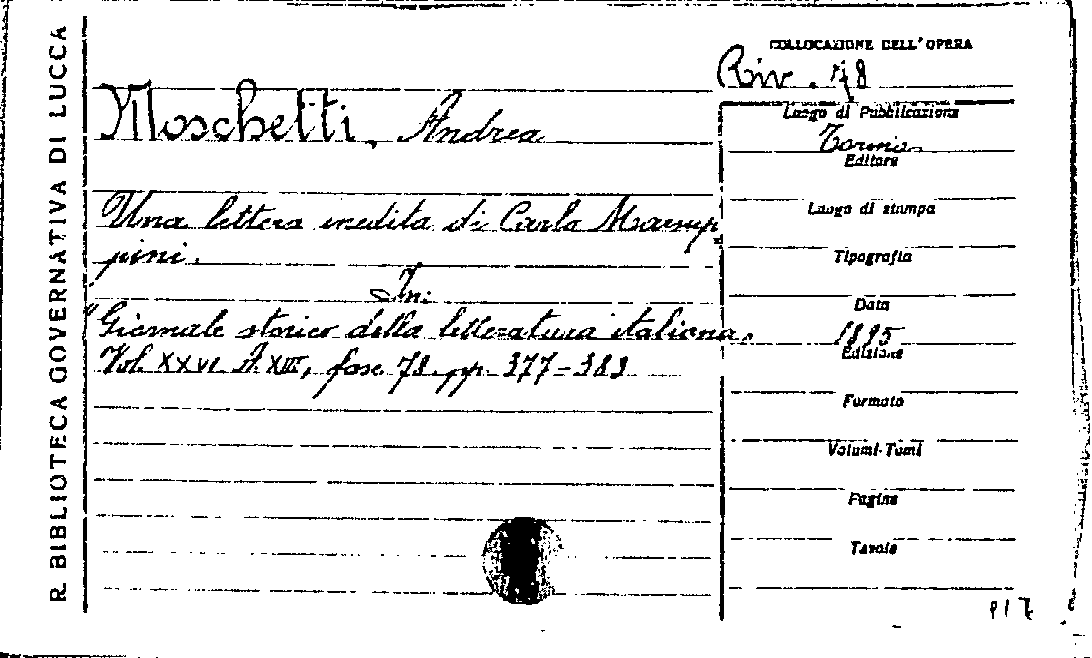 R. BIBLIOTECA GOVERNATIVA DI LUCCA
COLLOCAZIONE DELL'OPERA
Riv. 78
Moschetti, Andrea
Una lettera inedita di Carlo Marsup
pini.
In:
"Giornale storico della letteratura italiana,
Vol. XXVI A. XIII, fasc 78 pp. 377-383
Luogo di Pubblicazione
Torino
Editore
Luogo di stampa
Tipografia
Data
1895
Edizione
Formato
Volumi-Tomi
Pagine
Tavole